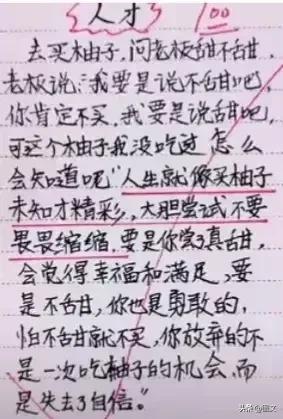 人才 100
去买柚子,问老板甜不甜,
老板说:我要是说不甜吧,
你肯定不买,我要是说甜吧,
可这个柚子我没吃过 怎么
会知道呢"人生就像买柚子
未知才精彩,大胆尝试不要
畏畏缩缩,要是你尝了真甜,
会觉得幸福和满足,要
是不甜,你也是勇敢的,
怕不甜就不买,你放弃的不
是一次吃柚子的机会,而
是失去了自信。"